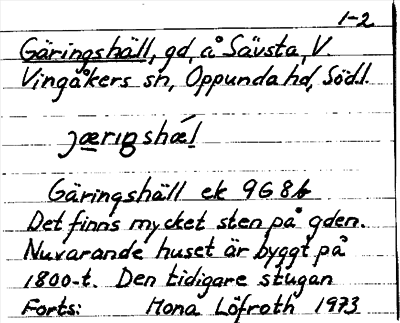 1-2
Gäringshäll, gd, å Sävsta, V.
Vingåkers sn, Oppunda hd, Södl.
jæ̲riŋshǽl̲
Gäringshäll ek 9G 8b
Det finns mycket sten på gden.
Nuvarande huset är byggt på
1800-t. Den tidigare stugan
Forts: Mona Löfroth 1973